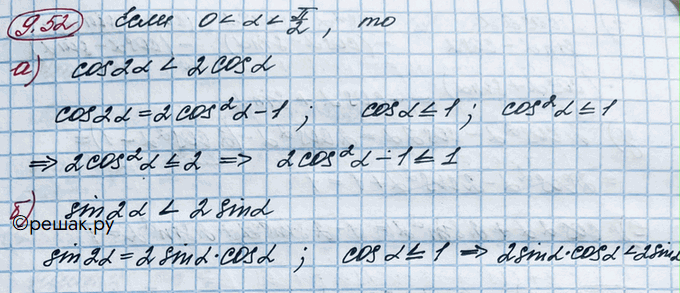 9.52 Если 0 < α < π/2, то
а) cos2α < 2cosα
cos2α = 2cos²α-1 ; cosα ≤ 1 ; cos²α ≤ 1
⇒ 2cos²α ≤ 2 ⇒ 2cos²α - 1 ≤ 1
б) sin2α < 2sinα
©решак.ру
sin2α = 2sinα·cosα ; cosα ≤ 1 ⇒ 2sinα·cosα < 2sinα